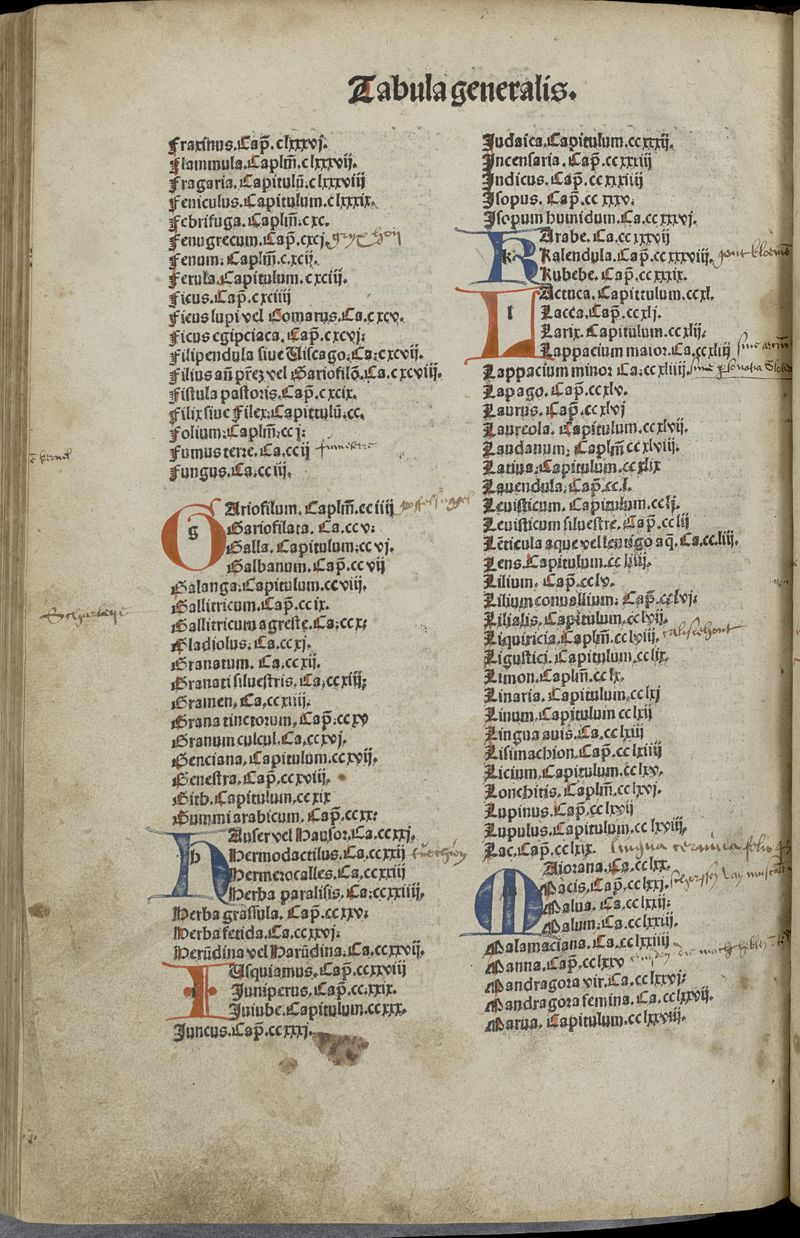 Tabula generalis.
Fraxinus. Cap̄. clxxxvj.
Flammula. Caplm̄. clxxxvij.
Fragaria. Capitulū. clxxxviij
Feniculus. Capitulum. clxxxix.
Febrifuga. Caplm̄. cxc.
Fenugrecum. Cap̄. cxcj.
Fenum. Caplm̄. c.xcij.
Ferula. Capitulum. cxciij.
Ficus. Cap̄. cxciiij
Ficus lupi vel Comarus. Ca. cxcv.
Ficus egipciaca. Cap̄. cxcvj.
Filipendula siue Viscago. Ca. cxcvij.
Filius an̄ Gariofilō. Ca. cxcviij.
Fistula pastoris. Cap̄. cxcix.
Filix siue Filex. Capittulū. cc.
Folium. Caplm̄. cc j.
Fumus terre. Ca. cc ij
Fungus. Ca. cc iij.
g
GAriofilum. Caplm̄. cc iiij
Gariofilata. Ca. cc v.
Galla. Capitulum. cc vj.
Galbanum. Cap̄. cc vij
Galanga. Capitulum. cc viij.
Gallitricum. Cap̄. cc ix.
Gallitricum agreste. Ca. cc x.
Gladiolus. Ca. cc xj.
Granatum. Ca. cc xij.
Granati siluestris. Ca. cc xiij.
Gramen. Ca. cc xiiij.
Grana tinctorum. Cap̄. cc xv
Granum culcul. Ca. cc xvj.
Genciana. Capitulum. cc xvij.
Genestra. Cap̄. cc xviij.
Gith. Capitulum. cc xix
Gummi arabicum. Cap̄. cc xx.
h
HAuser vel Hausor. Ca. cc xxj.
Hermodactilus. Ca. cc xxij
Hermerocalles. Ca. cc xxiij
Herba paralisis. Ca. cc xxiiij.
Herba grassula. Cap̄. cc xxv.
Herba fetida. Ca. cc xxvj.
Herūdina vel Harūdina. Ca. cc xxvij.
IUsquiamus. Cap̄. cc xxviij
Juniperus. Cap̄. cc. xxix.
Juiube. Capitulum. cc xxx.
Juncus. Cap̄. cc xxxj.
Judaica. Capitulum. cc xxxij.
Incensaria. Cap̄. cc xxxiij
Indicus. Cap̄. cc xxxiiij
Isopus. Cap̄. cc xxxv.
Isopum humidum. Ca. cc xxxvj.
k
KArabe. Ca. cc xxxvij
Kalendula. Cap̄. cc xxxviij.
Kubebe. Cap̄. cc xxxix.
l
LActuca. Capittulum. cc xl.
Lacca. Cap̄. cc xlj.
Larix. Capitulum. cc xlij.
Lappacium maior. Ca. cc xliij
Lappacium minor Ca. cc xliiij.
Lapago. Cap̄. cc xlv.
Laurus. Cap̄. cc xlvj
Laureola. Capitulum. cc xlvij.
Laudanum. Caplm̄ cc xlviij.
Latiria. Capitulum. cc xlix
Lauendula. Cap̄. cc. l.
Leuisticum. Capitulum. cc lj.
Leuisticum siluestre. Cap̄. cc lij
Lēticula aque vel lentigo aq̄. Ca. cc. liij.
Lens. Capitulum. cc liiij.
Lilium. Cap̄. cc lv.
Lilium conuallium. Cap̄. cc lvj.
Lilialis. Capitulum. cc lvij.
Liquiricia. Caplm̄. cc lviij.
Ligustici. Capitulum. cc lix.
Limon. Caplm̄. cc lx.
Linaria. Capitulum. cc lxj
Linum. Capitulum cc lxij
Lingua auis. Ca. cc lxiij
Lisimachion. Cap̄. cc lxiiij
Licium. Capitulum. cc lxv.
Lonchitis. Caplm̄. cc lxvj.
Lupinus. Cap̄. cc lxvij
Lupulus. Capitulum. cc lxviij.
Lac. Cap̄. cc lxix. lingua
MAiorana. Ca. cc lxx.
Macis. Cap̄. cc lxxj.
Malua. Ca. cc lxxij.
Malum. Ca. cc lxxiij.
Malamaciana. Ca. cc lxxiiij
Manna. Cap̄. cc lxxv
Mandragora vir. Ca. cc lxxvj.
Mandragora femina. Ca. cc lxxvij.
Marua. Capitulum. cc lxxviij.